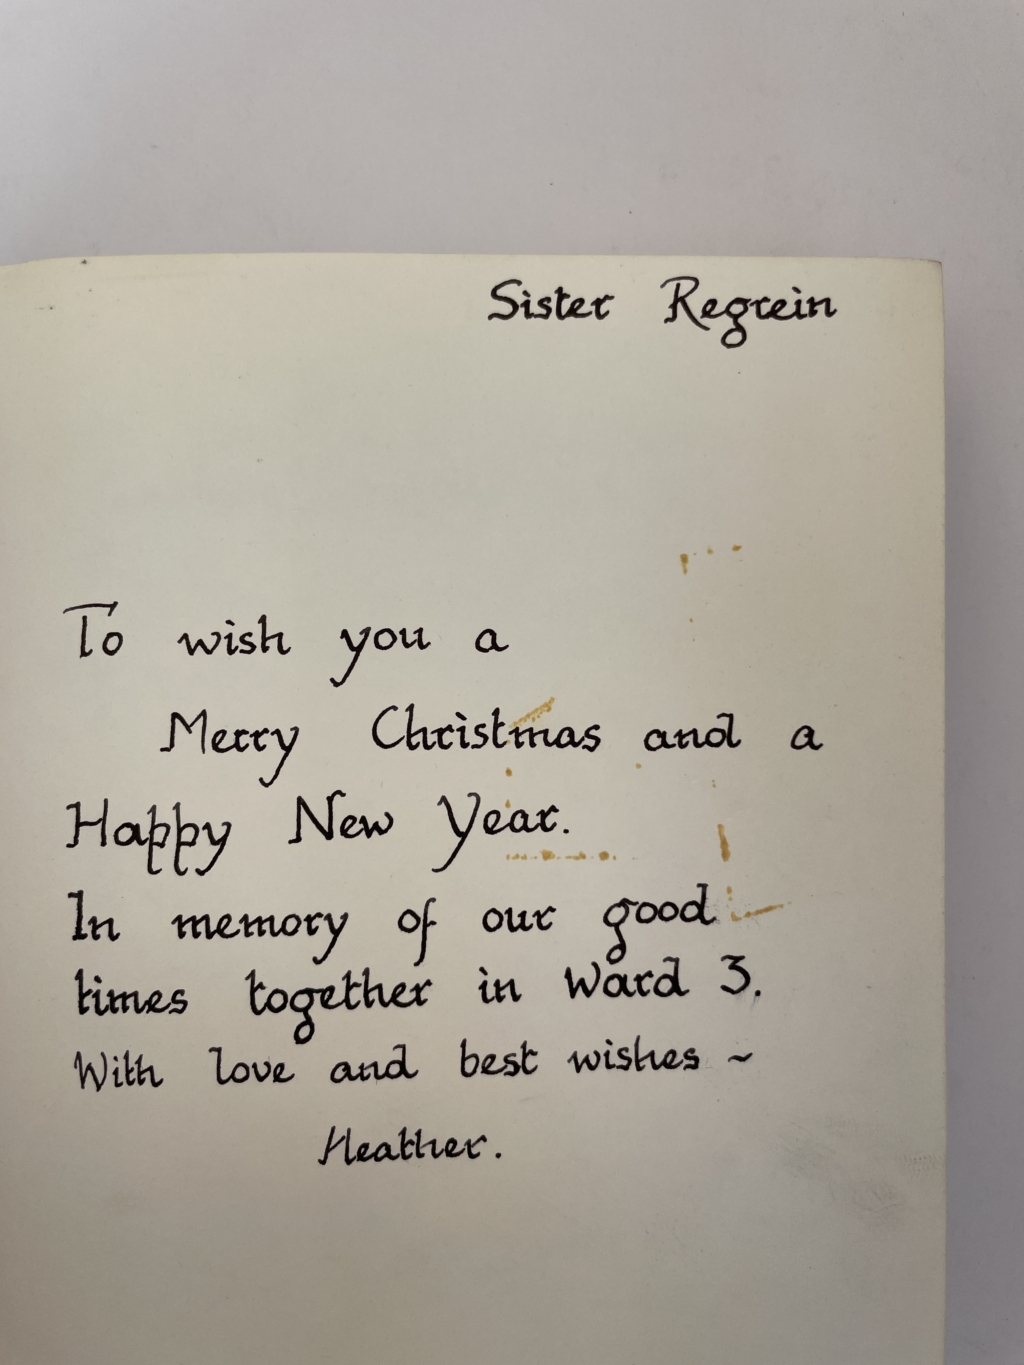 Sister Regrein
To wish you a
Merry Christmas and a
Happy New Year.
In memory of our good
times together in Ward 3.
With love and best wishes ~
Heather.